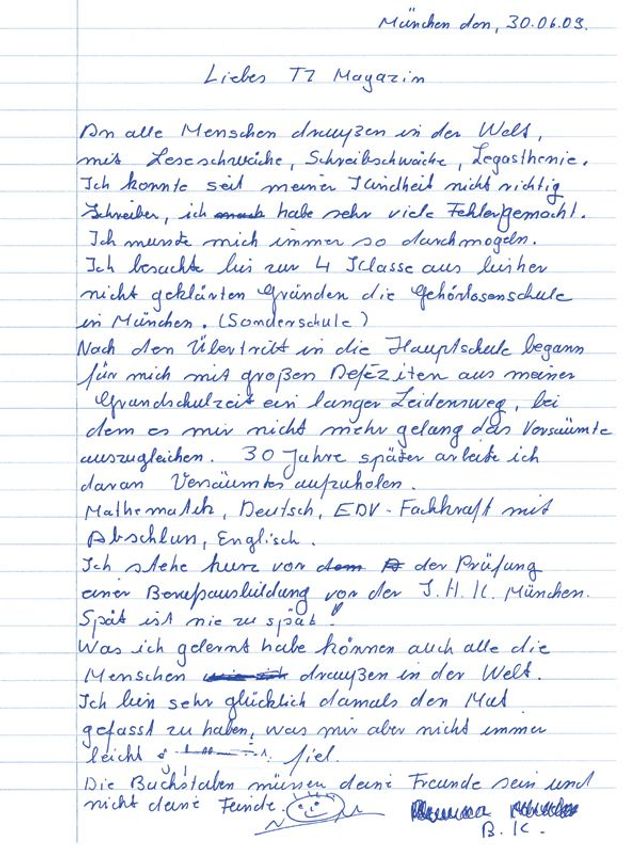 München den, 30.06.09.
Liebes TZ Magazin
An alle Menschen draußen in der Welt,
mit Leseschwäche, Schreibschwäche, Legasthenie.
Ich konnte seit meiner Kindheit nicht richtig
Schreiben, ich habe sehr viele Fehler gemacht.
Ich musste mich immer so durchmogeln.
Ich besuchte bis zur 4 Klasse aus bisher
nicht geklärten Gründen die Gehörlosenschule
in München. (Sonderschule)
Nach den Übertritt in die Hauptschule begann
für mich mit großen Defeziten aus meiner
Grundschulzeit ein langer Leidensweg, bei
dem es mir nicht mehr gelang das Versäumte
auszugleichen. 30 Jahre später arbeite ich
daran Versäumtes aufzuholen.
Mathematik, Deutsch, EDV-Fachkraft mit
Abschluss, Englisch.
Ich stehe kurz vor der Prüfung
einer Berufsausbildung von der I.H.K. München.
Spät ist nie zu spät!
Was ich gelernt habe können auch alle die
Menschen draußen in der Welt.
Ich bin sehr glücklich damals den Mut
gefasst zu haben, was mir aber nicht immer
leicht fiel.
Die Buchstaben müssen deine Freunde sein und
nicht deine Feinde.
B.K.